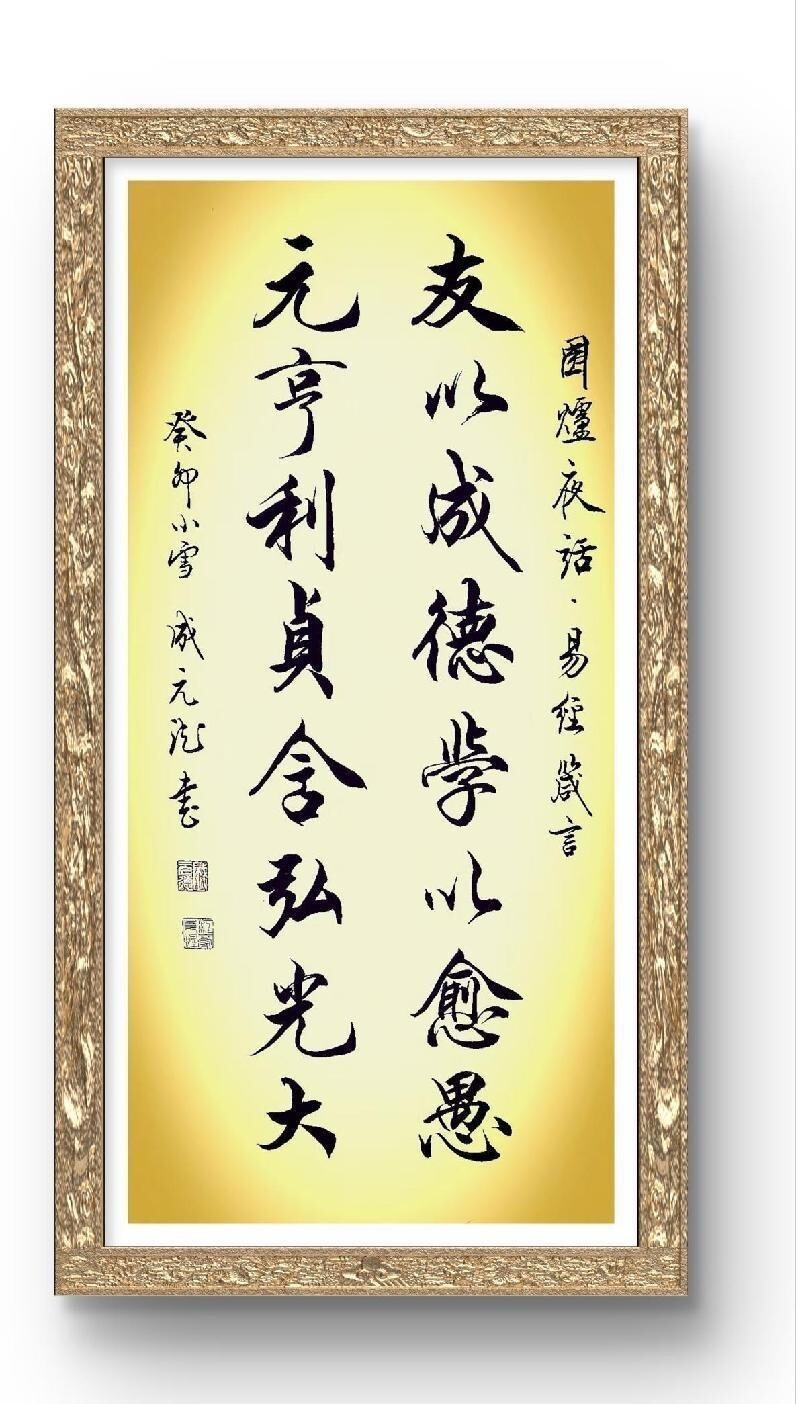 圍爐夜話·易經箴言
友以成德學以愈愚
元亨利貞含弘光大
癸卯小雪 成元 書